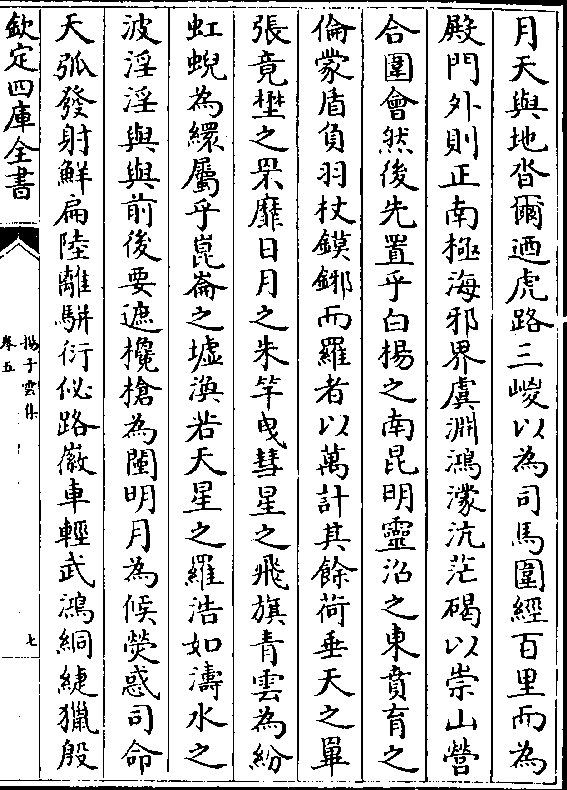 月天與地沓爾迺虎路三嵏以為司馬圍經百里而為
殿門外則正南極海邪界虞淵鴻濛沆茫碣以崇山營
合圍會然後先置乎白楊之南昆明靈沼之東賁育之
倫蒙盾負羽杖鏌鋣而羅者以萬計其餘荷垂天之罼
張竟壄之罘靡日月之朱竿曳彗星之飛旗青雲為紛
虹蜺為繯屬乎崑崙之墟渙若天星之羅浩如濤水之
波淫淫與與前後要遮欃槍為闉明月為候熒惑司命
天弧發射鮮扁陸離駢衍佖路徽車輕武鴻絧緁獵殷
欽定四庫全書
揚子雲集
卷五
七